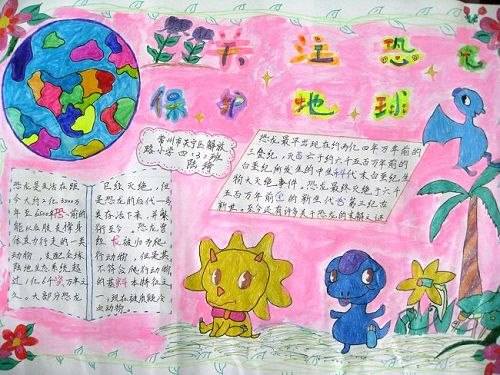 关 注 恐 龙
保 护 地 球
常州市天宁区解放
路小学四(3)班
恐龙最早出现在约2亿4000万年前的
三叠纪,灭亡于约六千五百万年前的
白垩纪所发生的中生代末白垩纪生
物大灭绝事件。恐龙最终灭绝于六千
五百万年前的新生代第三纪
至今还有许多关于恐龙的未解之谜
恐龙是生活在距
今大约2亿3500万
年至6500万年前的
能以后肢支撑身
体直立行走的一类
动物,支配全球
陆地生态系统超
过1亿6千万年之
久。大部分恐龙
已经灭绝,但
是恐龙的后代—鸟
类存活下来,并繁
衍至今。恐龙曾
经被归为爬
行动物,但是其
不符合爬行动物
的基本特征之
一,现在被质疑
动物。